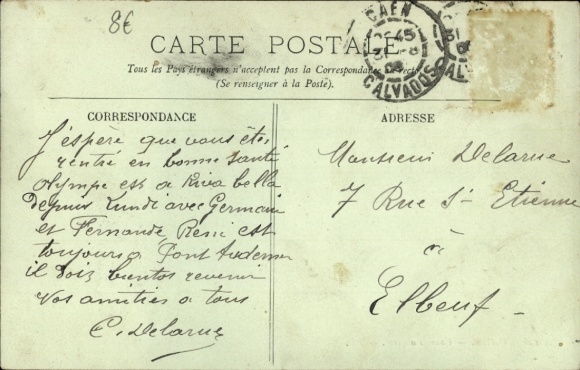 8€
CARTE POSTALE
Tous les Pays étrangers n'acceptent pas la Correspondance au recto
(Se renseigner à la Poste).
CAEN
CALVADOS
CORRESPONDANCE
J'éspère que vous êtes
rentré en bonne santé
Olympe est a Riva bella
depuis Lundi avec Germain
et Fernande, René est
toujours a Pont Audemer
il dois bientot revenir
Vos amitiés a tous
E. Delarue
ADRESSE
Monsieur Delarue
7 Rue St Etienne
à
Elbeuf